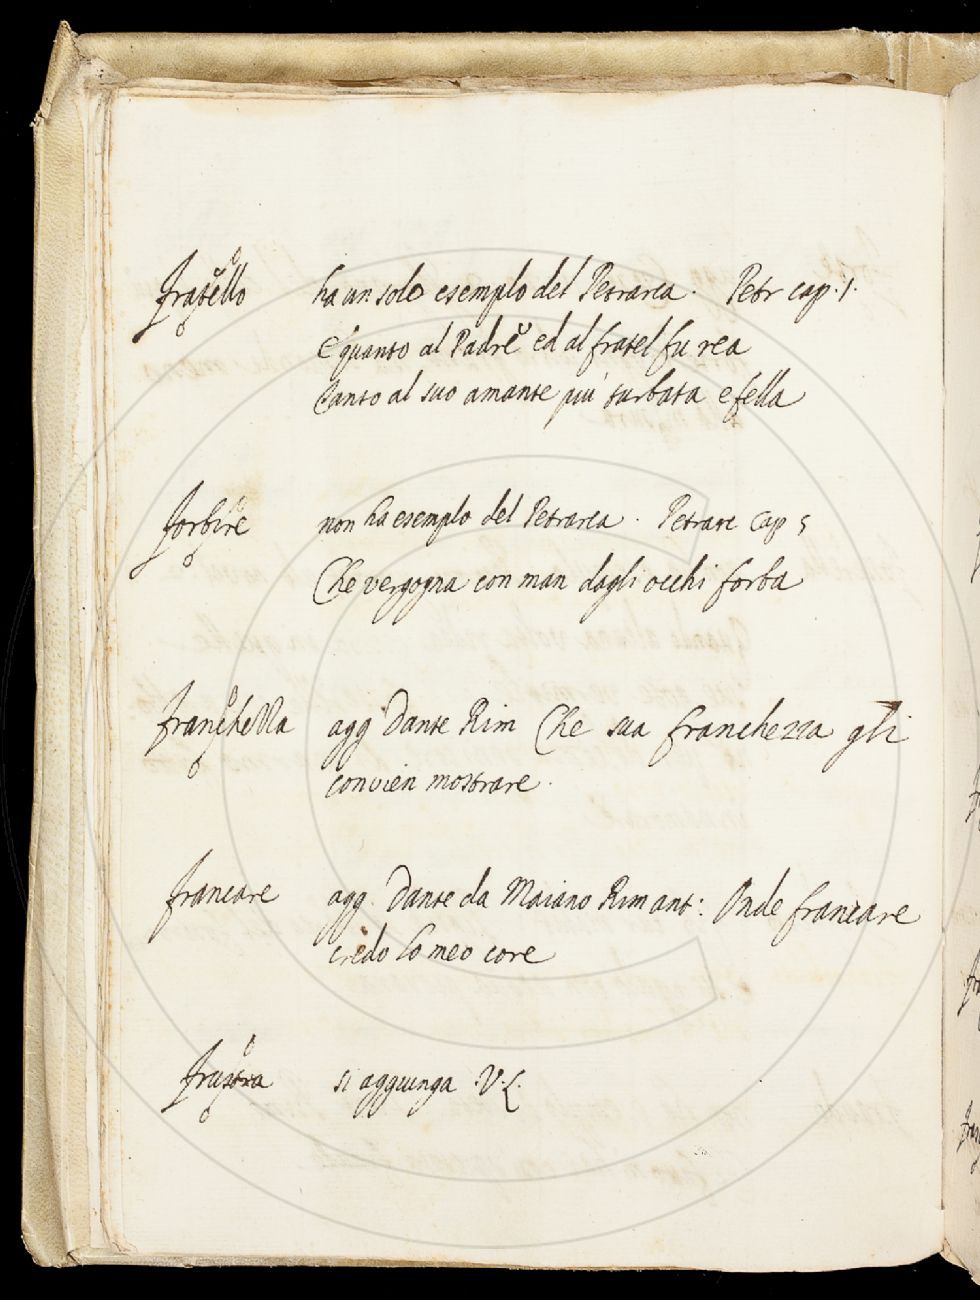 fratello ha un solo esemplo del Petrarca. Petr cap. 1.
E quanto al Padre ed al fratel fu rea
Tanto al suo amante piu turbata e fella
forbire non ha esemplo del Petrarca. Petrarc Cap 5
Che vergogna con man dagli occhi forba
franchezza agg Dante Rim Che sua franchezza gli
convien mostrare.
francare agg. Dante da Maiano Rim ant: Onde francare
credo lo meo core
frustra si aggiunga V. L.